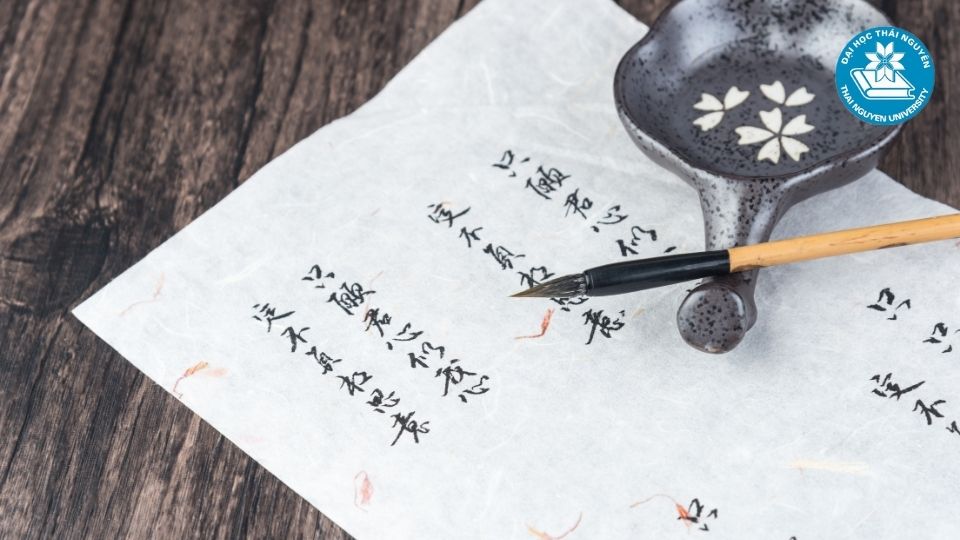 ĐẠI HỌC THÁI NGUYÊN
THAI NGUYEN UNIVERSITY
只
只
定不
只願君心似
定不負相思意
只願君心似我心
定不負相思意
只